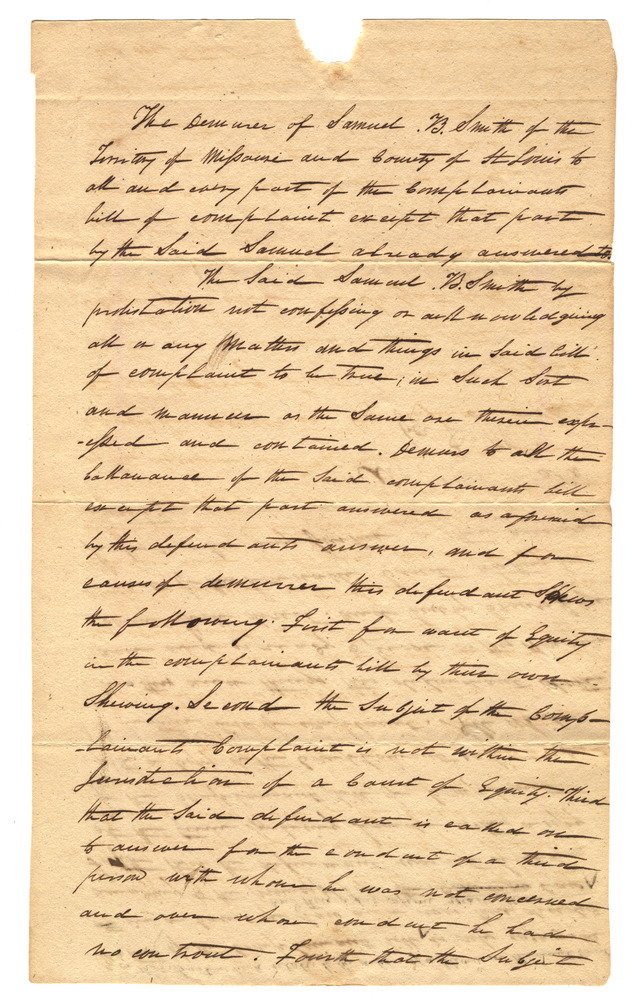 The Demurer of Samuel . B. Smith of the
Territory of Missouri and County of St Louis to
all and every part of the Complainants
bill of complaint except that part
by the Said Samuel already answered to.
The Said Samuel . B. Smith by
protestation not confessing or acknowledging
all or any Matters and things in Said bill
of complaint to be true, in Such Sort
and manner as the Same are therein expr-
-essed and contained. Demurs to all the
ballanance of the Said complainants bill
except that part answered as aforesaid
by this defendants answer, and for
causes of demurrer this defendant Shews
the following. First for want of Equity
in the complainants bill by their own
Shewing. Second the Subject of the Comp-
-lainants Complaint is not within the
Jurisdiction of a Court of Equity. Third
that the Said defendant is called on
to answer for the conduct of a third
person with whom he was not concerned
and over whose conduct he had
no controul . Fourth that the Subject